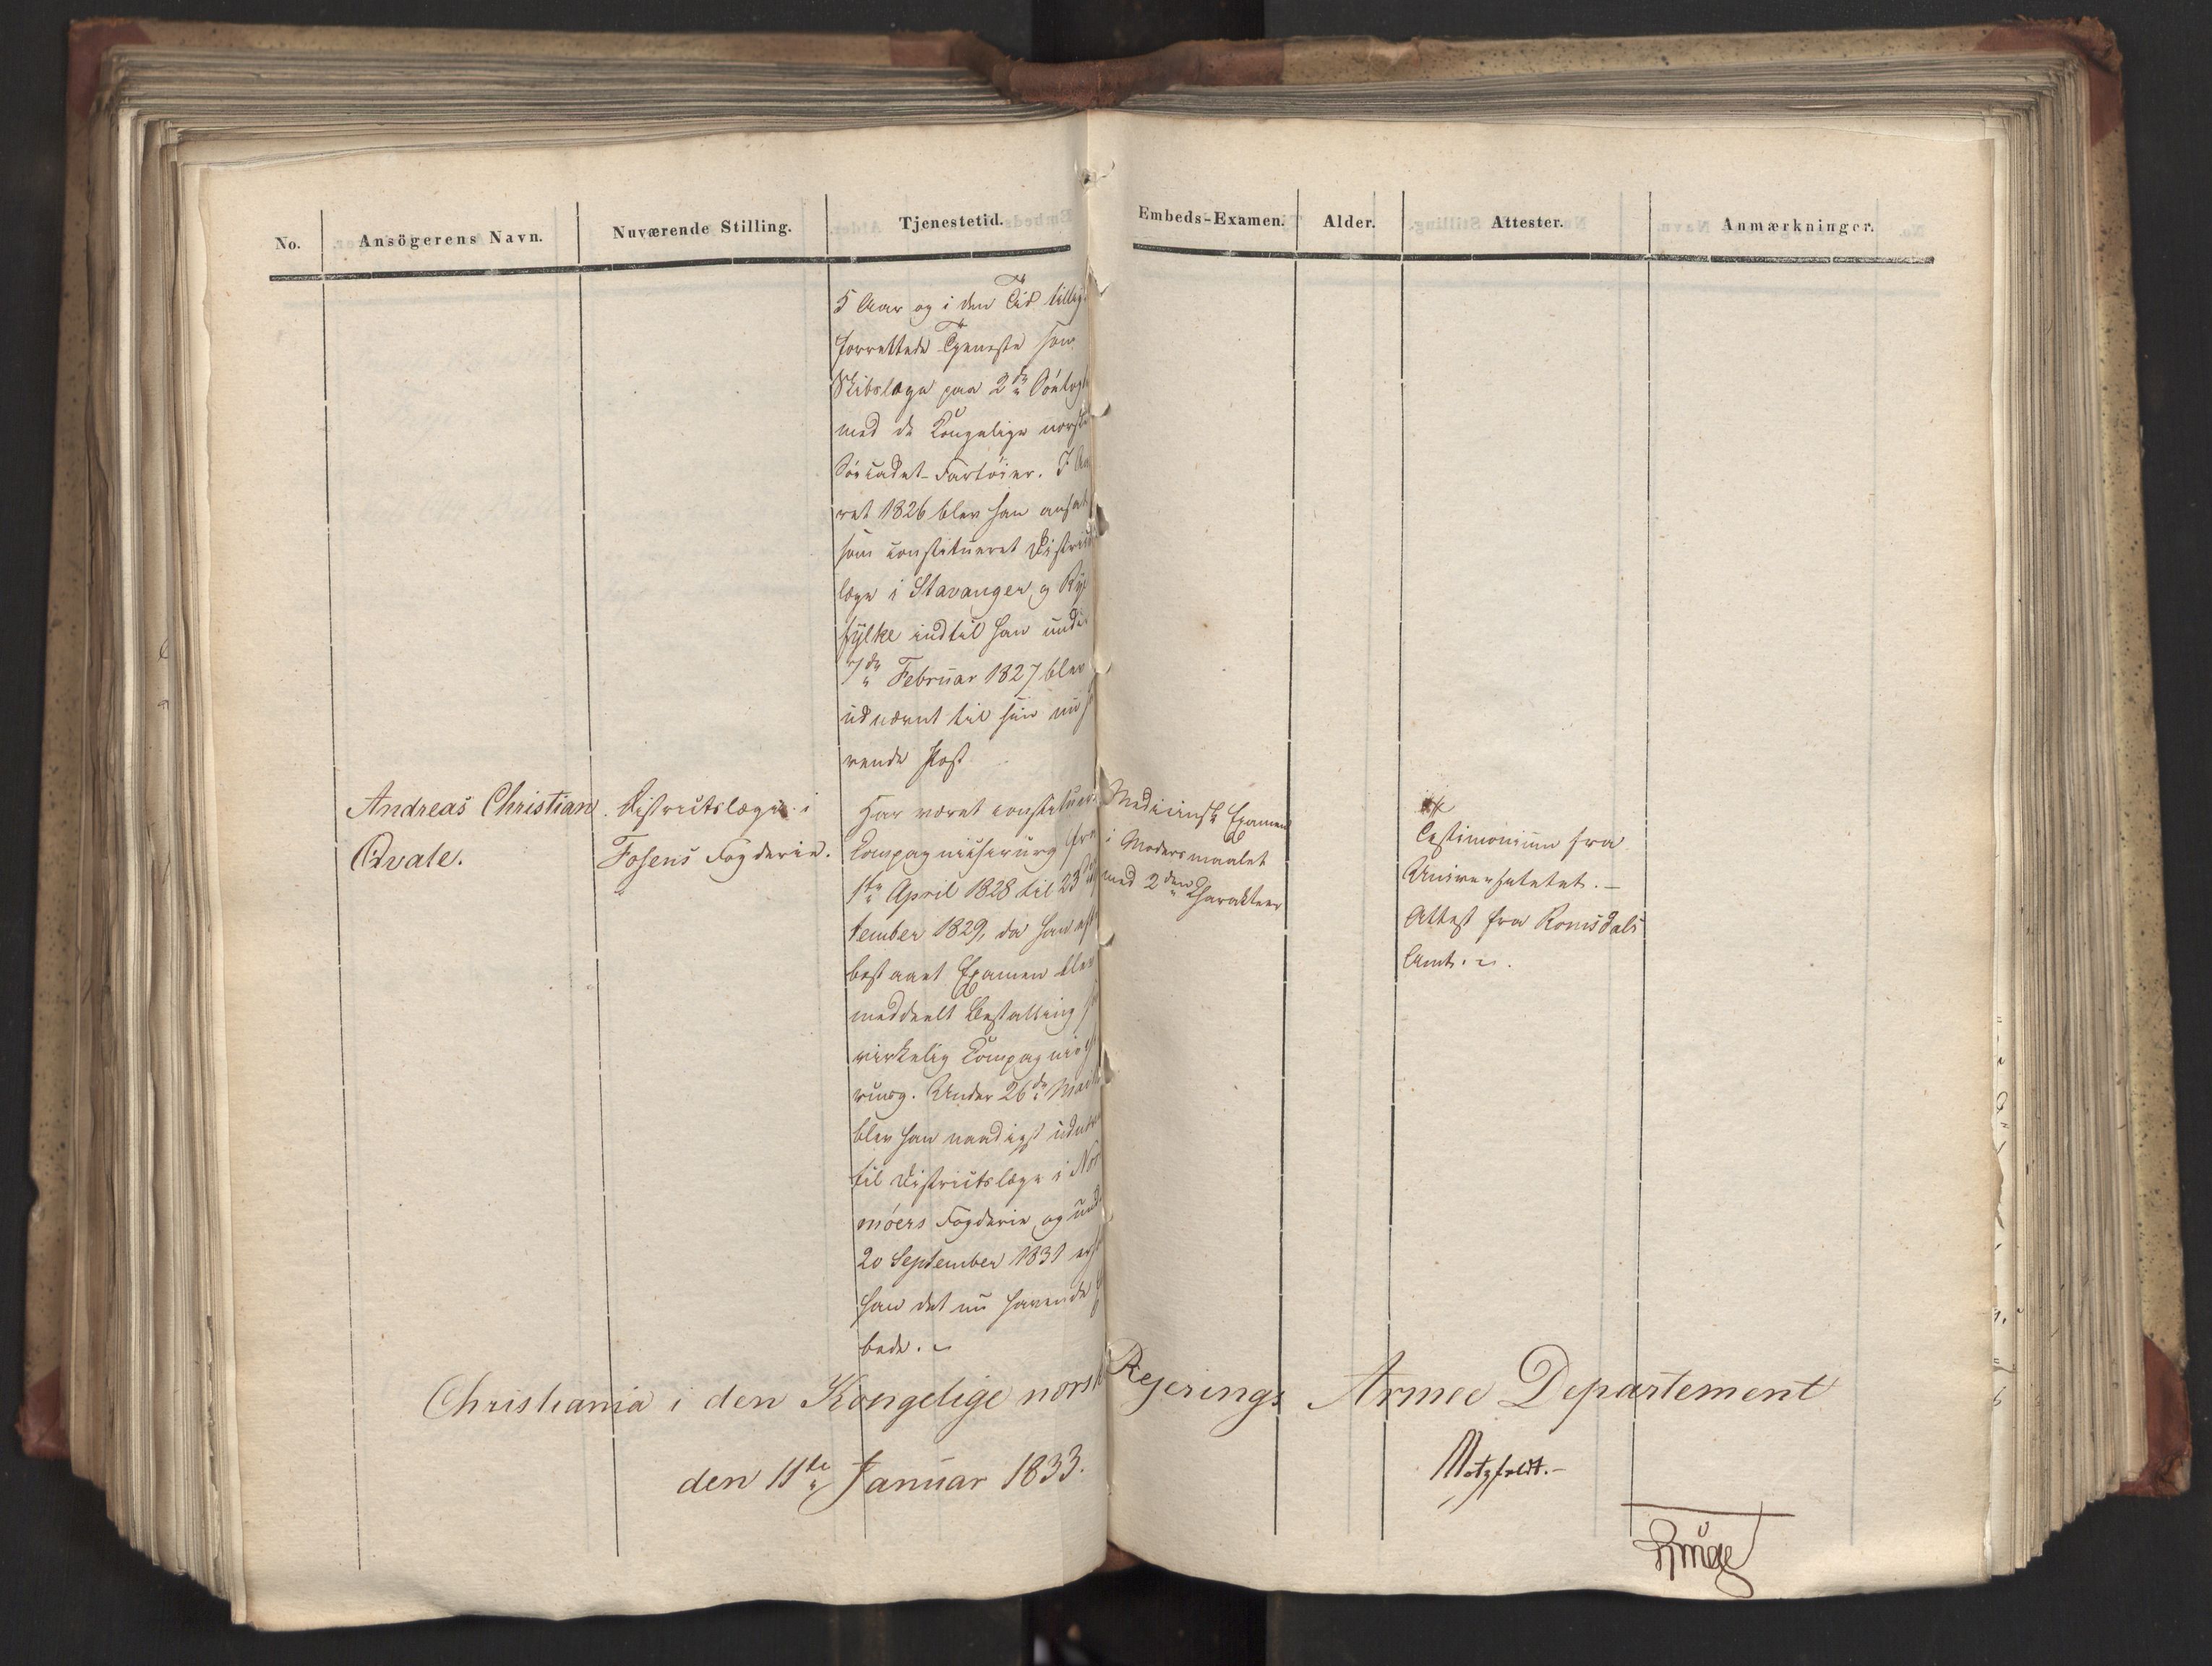 No.
Ansögerens Navn.
Nuværende Stilling.
Tjenestetid.
Embeds-Examen.
Alder.
Attester.
Anmærkninger.
5 Aar og i den Tid tillige
forrettede Tjeneste som
Skibslæge paa 2de Søetogt
med de Kongelige norske
Søecadet-Fartøier. I Aa
ret 1826 blev han ansat
som constitueret District
læge i Stavanger og Ry
fylke indtil han under
7de Februar 1827 blev
udnævnt til sin nu ha
vende Post
Andreas Christian
Qvale.
Districtslæge i
Fosens Fogderie.
Har været constitueret
Compagniechirurg fra
1ste April 1828 til 23 Sep
tember 1829, da han efter
bestaaet Examen blev
meddeelt Bestalling som
virkelig Compagniechi
rurg. Under 26de Marts
blev han naadigst udnævnt
til Districtslæge i Nord
møers Fogderie, og under
20 September 1831 erholdt
han det nu havende Em
bede.
Medicinsk Examen
i Modersmaalet
med 2den Charakteer
Testimonium fra
Universitetet. –
Attest fra Romsdals
Amt.
Christiania i den Kongelige norske Regjerings Armee Departement
den 11te Januar 1833.
Motzfeldt. –